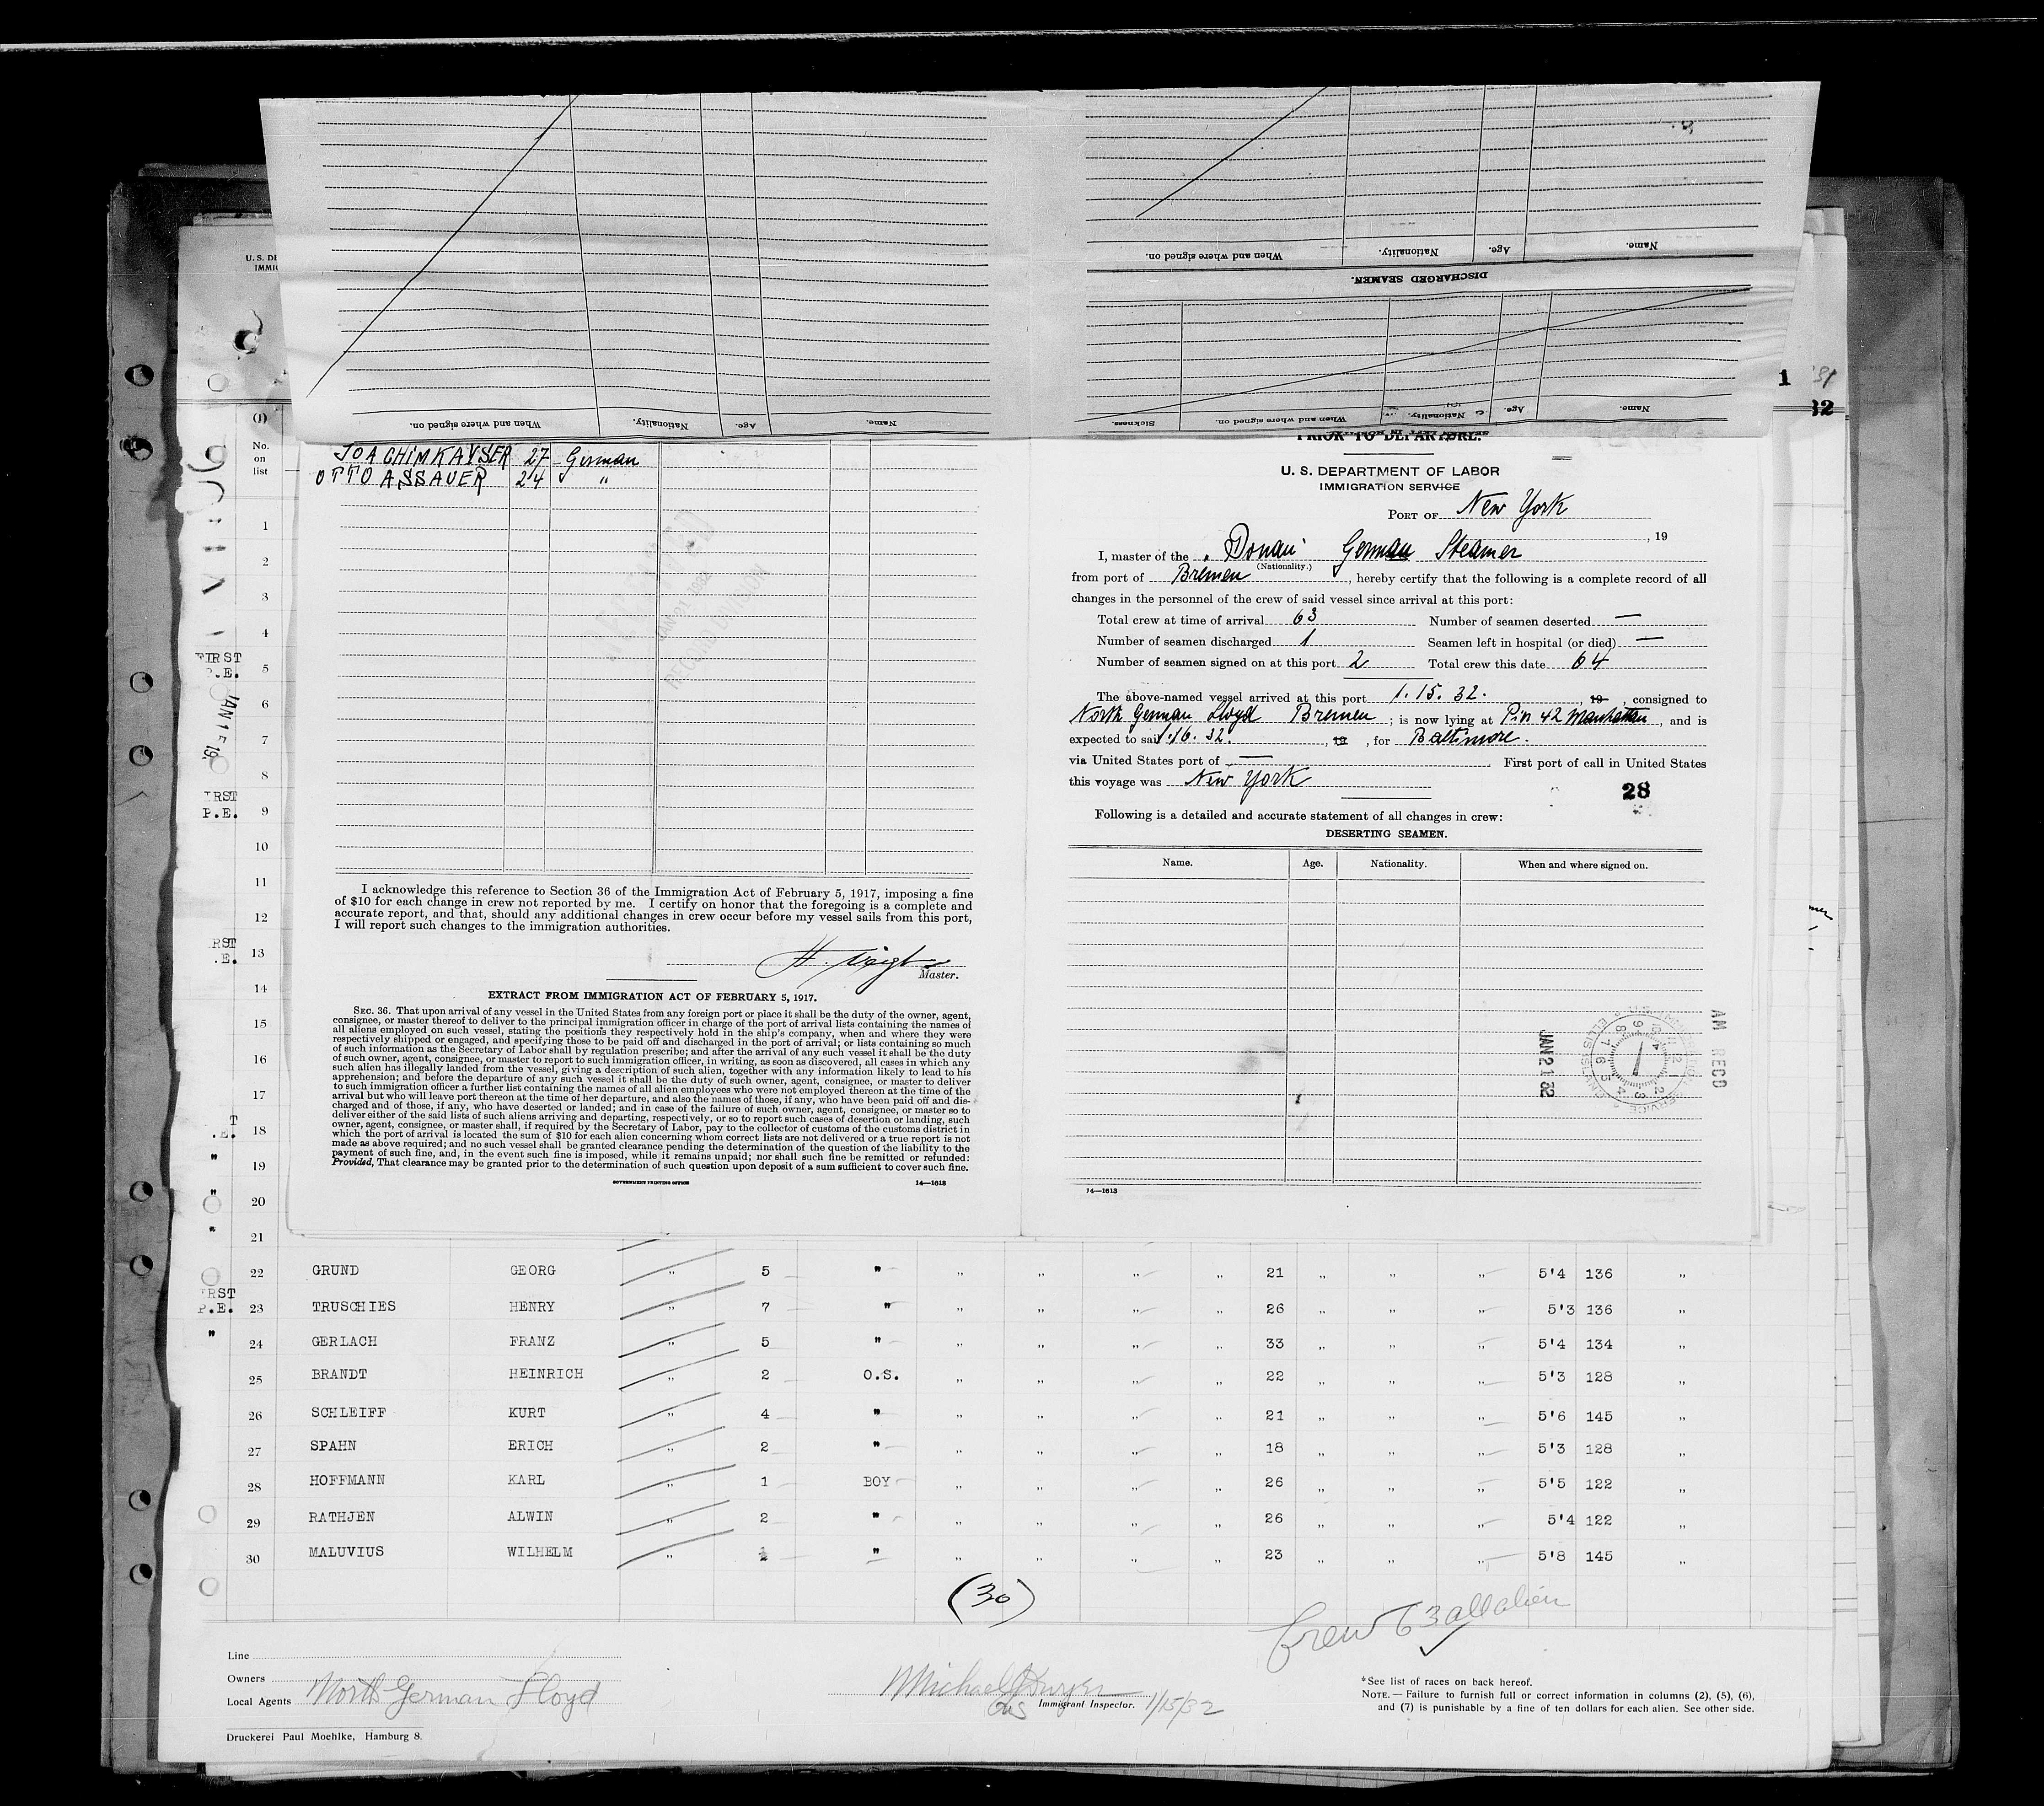 When and where signed on. Nationality. Age. Name.
DISCHARGED SEAMEN.
When and where signed on. Nationality. Age. Name.
Sickness. When and where signed on. Nationality. Age. Name.
U. S. DE
IMMIG
1
32
(1)
No.
on
list
JOACHIM KAYSER 27 German
OTTO ASSAUER 24 "
RECORD DIVISION
I acknowledge this reference to Section 36 of the Immigration Act of February 5, 1917, imposing a fine
of $10 for each change in crew not reported by me. I certify on honor that the foregoing is a complete and
accurate report, and that, should any additional changes in crew occur before my vessel sails from this port,
I will report such changes to the immigration authorities.
H. Voigt
Master.
EXTRACT FROM IMMIGRATION ACT OF FEBRUARY 5, 1917.
SEC. 36. That upon arrival of any vessel in the United States from any foreign port or place it shall be the duty of the owner, agent,
consignee, or master thereof to deliver to the principal immigration officer in charge of the port of arrival lists containing the names of
all aliens employed on such vessel, stating the positions they respectively hold in the ship's company, when and where they were
respectively shipped or engaged, and specifying those to be paid off and discharged in the port of arrival; or lists containing so much
of such information as the Secretary of Labor shall by regulation prescribe; and after the arrival of any such vessel it shall be the duty
of such owner, agent, consignee, or master to report to such immigration officer, in writing, as soon as discovered, all cases in which any
such alien has illegally landed from the vessel, giving a description of such alien, together with any information likely to lead to his
apprehension; and before the departure of any such vessel it shall be the duty of such owner, agent, consignee, or master to deliver
to such immigration officer a further list containing the names of all alien employees who were not employed thereon at the time of the
arrival but who will leave port thereon at the time of her departure, and also the names of those, if any, who have been paid off and dis-
charged and of those, if any, who have deserted or landed; and in case of the failure of such owner, agent, consignee, or master so to
deliver either of the said lists of such aliens arriving and departing, respectively, or so to report such cases of desertion or landing, such
owner, agent, consignee, or master shall, if required by the Secretary of Labor, pay to the collector of customs of the customs district in
which the port of arrival is located the sum of $10 for each alien concerning whom correct lists are not delivered or a true report is not
made as above required; and no such vessel shall be granted clearance pending the determination of the question of the liability to the
payment of such fine, and, in the event such fine is imposed, while it remains unpaid; nor shall such fine be remitted or refunded:
Provided, That clearance may be granted prior to the determination of such question upon deposit of a sum sufficient to cover such fine.
GOVERNMENT PRINTING OFFICE 14—1613
PRIOR TO DEPARTURE.
U. S. DEPARTMENT OF LABOR
IMMIGRATION SERVICE
PORT OF New York
, 19
I, master of the "Donau" German Steamer
(Nationality.)
from port of Bremen, hereby certify that the following is a complete record of all
changes in the personnel of the crew of said vessel since arrival at this port:
Total crew at time of arrival 63 Number of seamen deserted —
Number of seamen discharged 1 Seamen left in hospital (or died) —
Number of seamen signed on at this port 2 Total crew this date 64
The above-named vessel arrived at this port 1.15.32. 19 , consigned to
North German Lloyd Bremen ; is now lying at Pier 42 Manhattan, and is
expected to sail 1.16.32. , 19 , for Baltimore.
via United States port of — First port of call in United States
this voyage was New York
28
Following is a detailed and accurate statement of all changes in crew:
DESERTING SEAMEN.
Name. Age. Nationality. When and where signed on.
JAN 21 32
AM RECD
14—1613
1
2
3
4
FIRST
P.E. 5
JAN 15 19
6
7
8
IRST
P.E. 9
10
11
12
RST
.E. 13
14
15
16
17
T
.E. 18
" 19
" 20
" 21
22 GRUND GEORG " 5 " " " " " 21 " " " 5'4 136 "
RST
P.E. 23 TRUSCHIES HENRY " 7 " " " " " 26 " " " 5'3 136 "
" 24 GERLACH FRANZ " 5 " " " " " 33 " " " 5'4 134 "
25 BRANDT HEINRICH " 2 O.S. " " " " 22 " " " 5'3 128 "
26 SCHLEIFF KURT " 4 " " " " " 21 " " " 5'6 145 "
27 SPAHN ERICH " 2 " " " " " 18 " " " 5'3 128 "
28 HOFFMANN KARL " 1 BOY " " " " 26 " " " 5'5 122 "
29 RATHJEN ALWIN " 2 " " " " " 26 " " " 5'4 122 "
30 MALUVIUS WILHELM " " " " " " 23 " " " 5'8 145 "
(30)
Crew 63 all alien
Line
Owners
Local Agents North German Lloyd
Michael Dwyer
Immigrant Inspector. 1/15/32
*See list of races on back hereof.
NOTE.— Failure to furnish full or correct information in columns (2), (5), (6),
and (7) is punishable by a fine of ten dollars for each alien. See other side.
Druckerei Paul Moehlke, Hamburg 8.